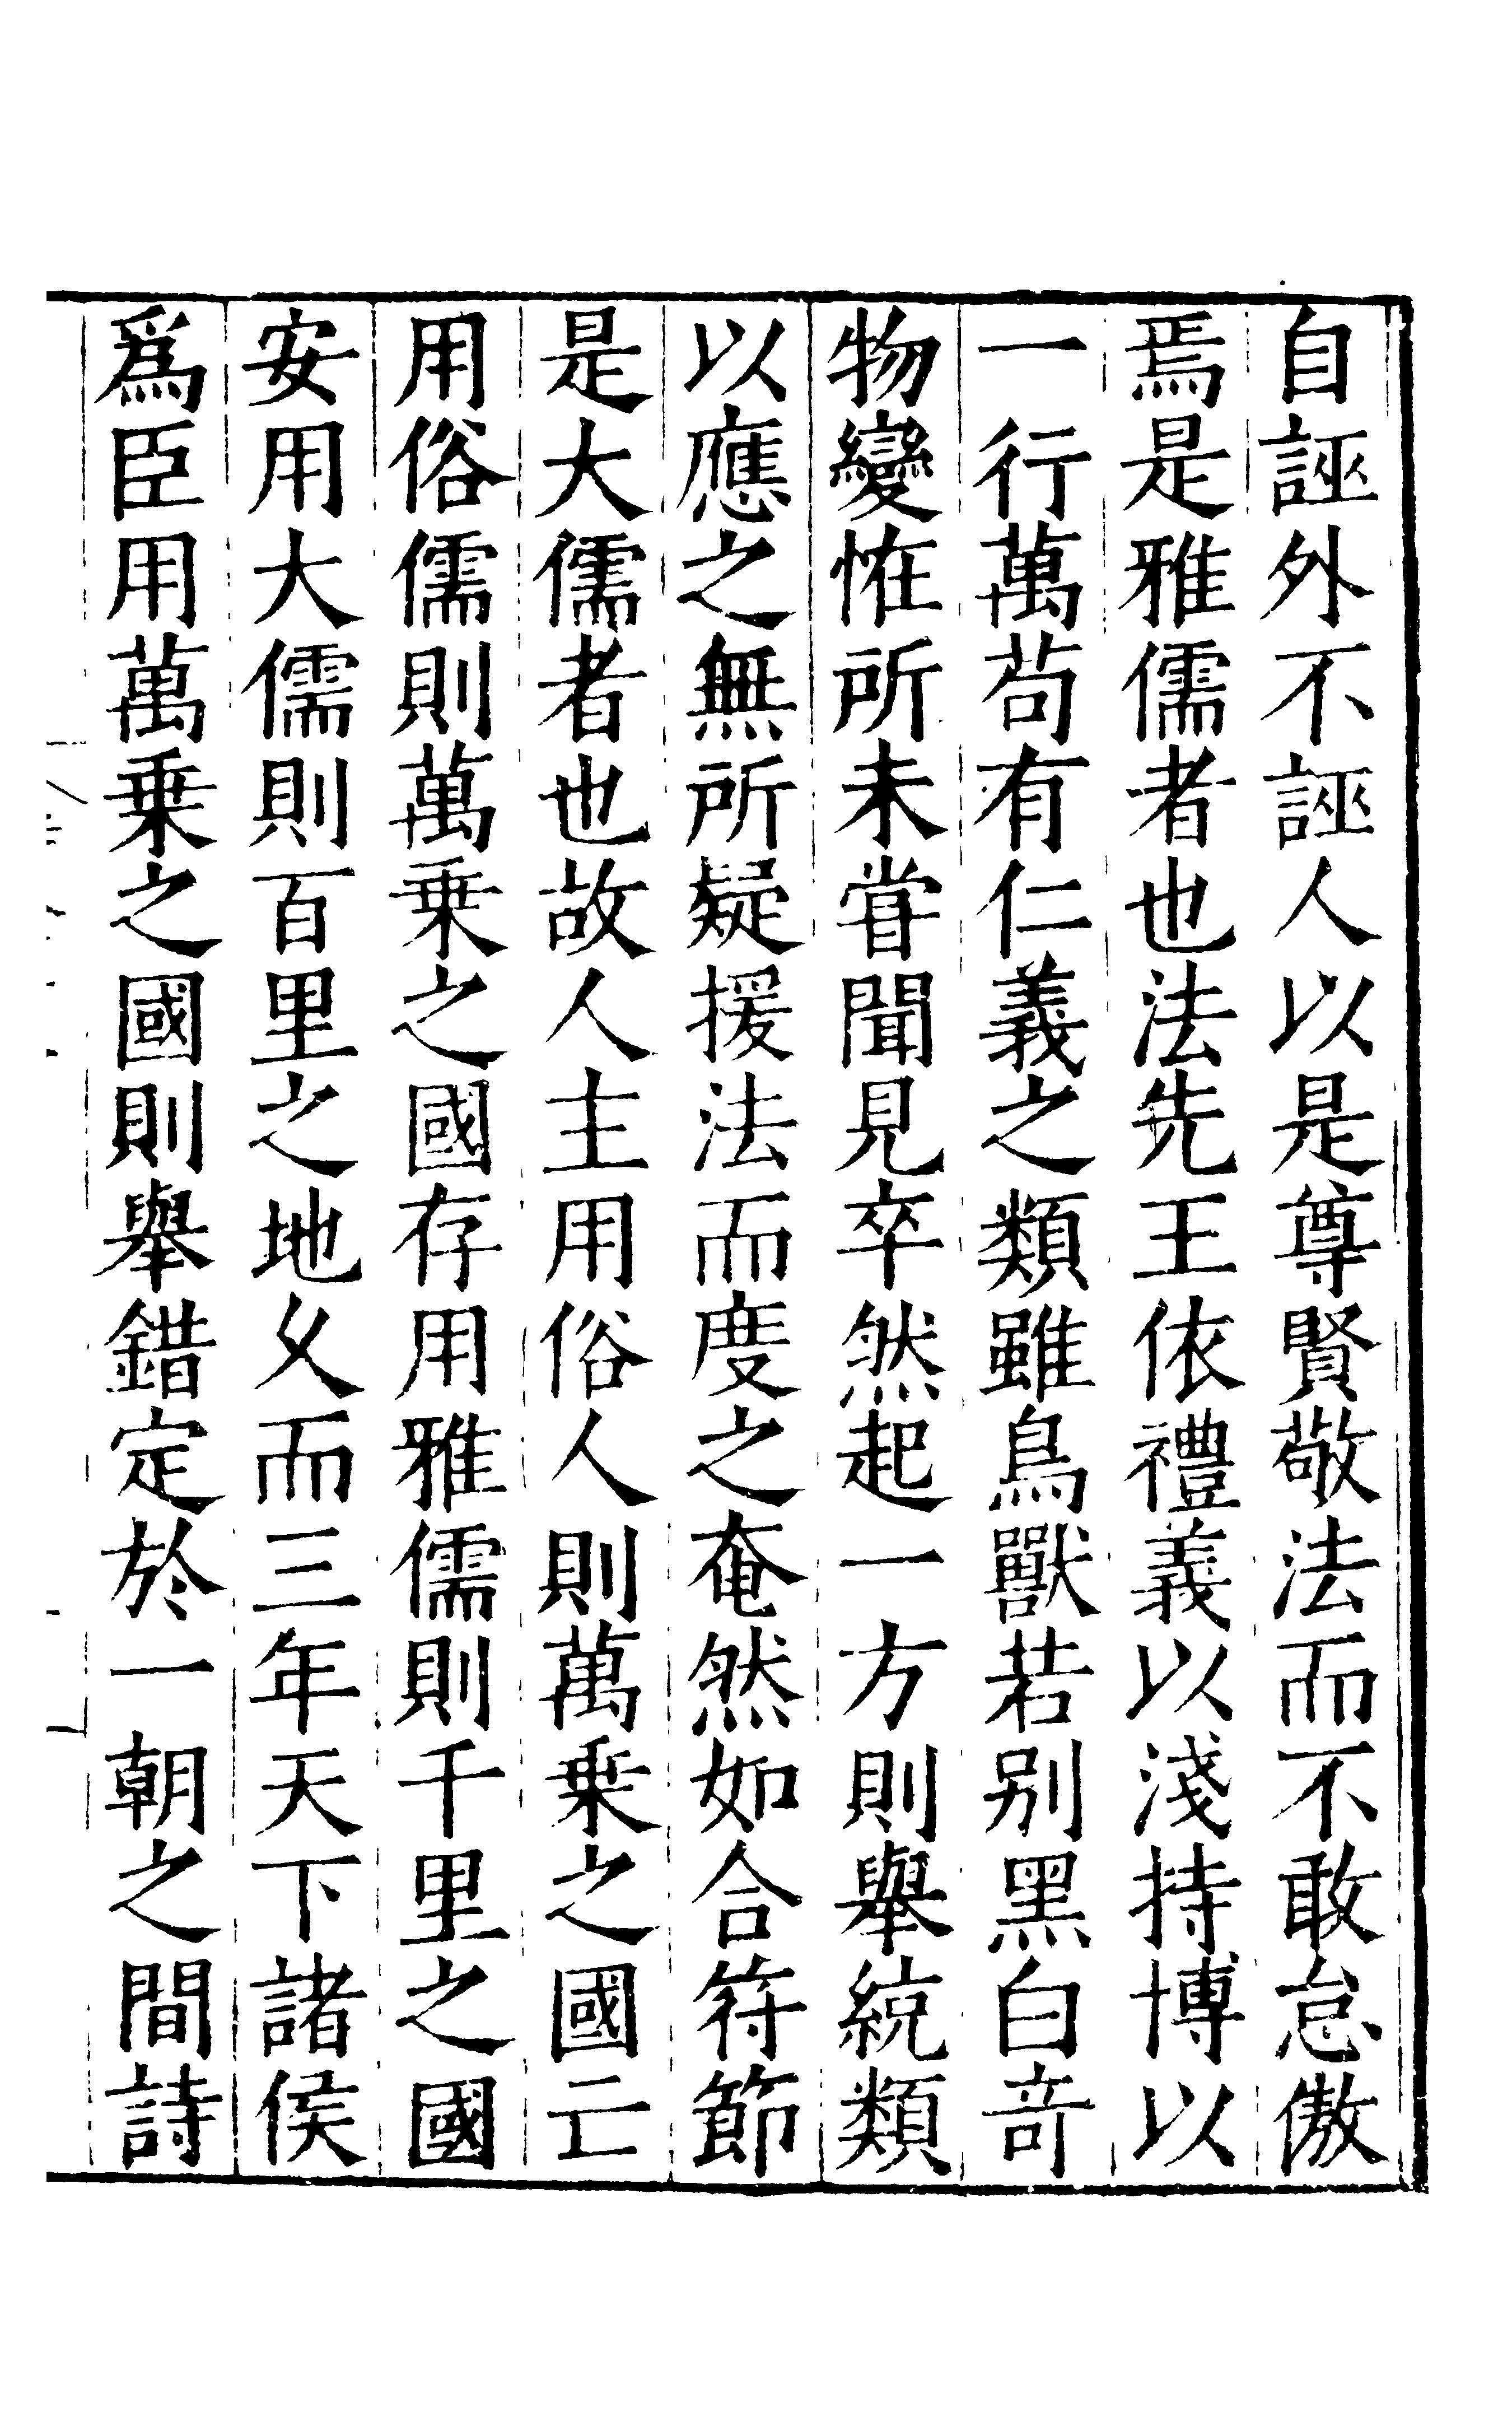 自誣外不誣人以是尊賢敬法而不敢怠傲
焉是雅儒者也法先王依禮義以淺持博以
一行萬苟有仁義之類雖鳥獸若别黑白竒
物變恠所未甞聞見卒然起一方則舉統類
以應之無所疑援法而度之奄然如合符節
是大儒者也故人主用俗人則萬乗之國亡
用俗儒則萬乗之國存用雅儒則千里之國
安用大儒則百里之地乆而三年天下諸侯
爲臣用萬乗之國則舉錯定於一朝之間詩